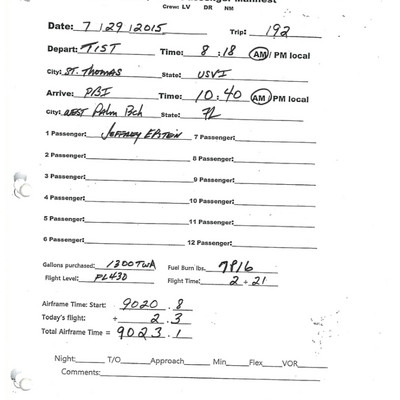 Passenger Manifest
Crew: LV DR NM
Date: 7 | 29 | 2015 Trip: 192
Depart: TIST Time: 8 : 18 AM / PM local
City: ST. Thomas State: USVI
Arrive: PBI Time: 10 : 40 AM / PM local
City: WEST Palm Bch State: FL
1 Passenger: Jeffrey Epstein 7 Passenger:
2 Passenger: 8 Passenger:
3 Passenger: 9 Passenger:
4 Passenger: 10 Passenger:
5 Passenger: 11 Passenger:
6 Passenger: 12 Passenger:
Gallons purchased: 1300 TWA Fuel Burn lbs. 7916
Flight Level: FL430 Flight Time: 2 + 21
Airframe Time: Start: 9020 . 8
Today's flight: + 2 . 3
Total Airframe Time = 9023 . 1
Night: T/O Approach Min Flex VOR
Comments: